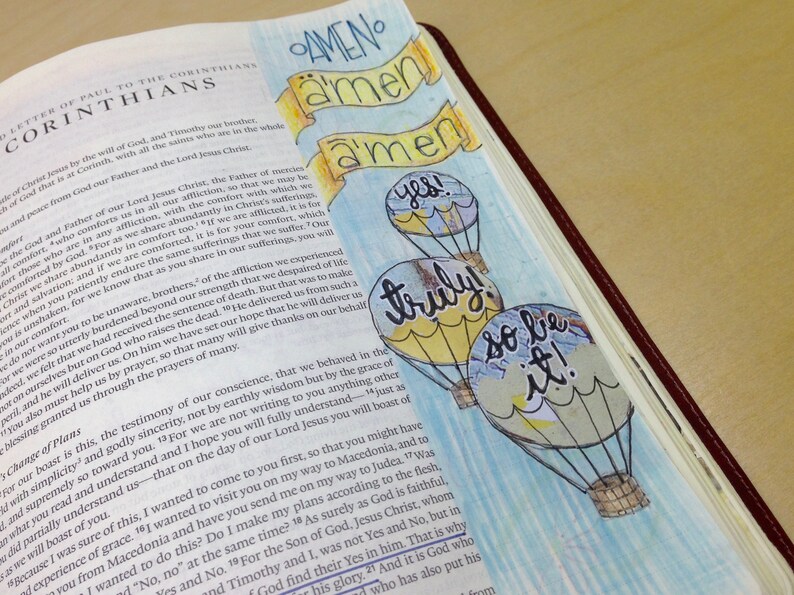 D LETTER OF PAUL TO THE CORINTHIANS
CORINTHIANS
of Christ Jesus by the will of God, and Timothy our brother,
of God that is at Corinth, with all the saints who are in the whole
you and peace from God our Father and the Lord Jesus Christ.
be the God and Father of our Lord Jesus Christ, the Father of mercies
all comfort, 4 who comforts us in all our affliction, so that we may be
those who are in any affliction, with the comfort with which we
are comforted by God. 5 For as we share abundantly in Christ's sufferings,
Christ we share abundantly in comfort too. 6 If we are afflicted, it is for
and salvation; and if we are comforted, it is for your comfort, which
when you patiently endure the same sufferings that we suffer. 7 Our
is unshaken, for we know that as you share in our sufferings, you will
in our comfort.
do not want you to be unaware, brothers, of the affliction we experienced
For we were so utterly burdened beyond our strength that we despaired of life
Indeed, we felt that we had received the sentence of death. But that was to make
not on ourselves but on God who raises the dead. 10 He delivered us from such a
peril, and he will deliver us. On him we have set our hope that he will deliver us
11 You also must help us by prayer, so that many will give thanks on our behalf
blessing granted us through the prayers of many.
's Change of Plans
For our boast is this, the testimony of our conscience, that we behaved in the
world with simplicity and godly sincerity, not by earthly wisdom but by the grace of
and supremely so toward you. 13 For we are not writing to you anything other
than what you read and understand and I hope you will fully understand— 14 just as
you did partially understand us—that on the day of our Lord Jesus you will boast of
as we will boast of you.
15 Because I was sure of this, I wanted to come to you first, so that you might have
experience of grace. 16 I wanted to visit you on my way to Macedonia, and to
to you from Macedonia and have you send me on my way to Judea. 17 Was
I wanted to do this? Do I make my plans according to the flesh,
and "No, no" at the same time? 18 As surely as God is faithful,
Yes and No. 19 For the Son of God, Jesus Christ, whom
and Timothy and I, was not Yes and No, but in
of God find their Yes in him. That is why
for his glory. 21 And it is God who
and who has also put his
AMEN
ä'men
ä'men
yes!
truly!
so be
it!